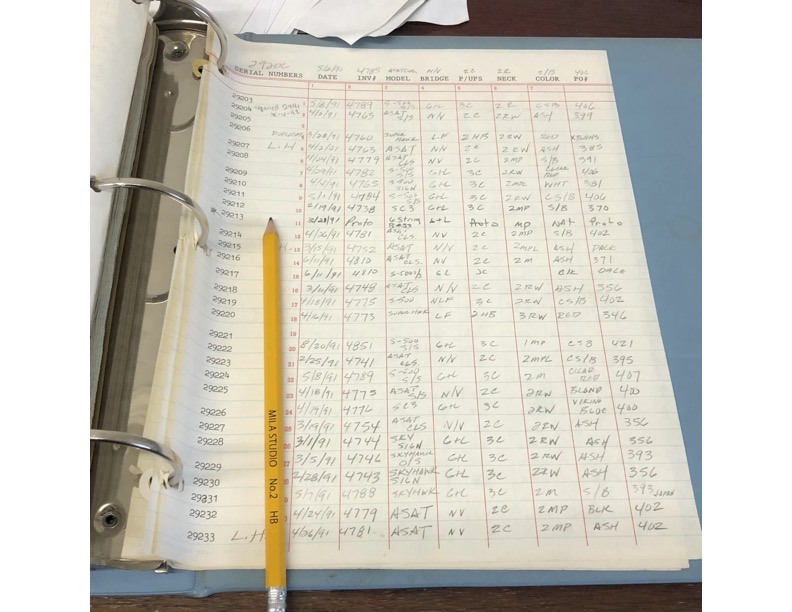 2920C 5/6/91 4785 N/V 2C 2R S/B 40C
SERIAL NUMBERS DATE INV# MODEL BRIDGE P/UPS NECK COLOR PO#
1 2 3 4 5 6 7
29203
29204 1 5/8/91 4789 S-500 G+L 3C 2R CSB 406
29205 2 4/2/91 4765 ASAT S/S N/V 2C 2RW ASH 399
29206
3/28/91 4760 LF 2HB 2RW RED
29207 L.H ASAT N/V 2C 2RW ASH 385
29208 4/24/91 4779 ASAT CLS NV 2C 2MP S/B 391
29209 4782 S-500 G+L 3C 2RW 406
29210 4765 S-500 SIGN G+L 3C 2MPL WHT 381
29211 5/1/91 4784 S-500 S/S G+L 3C 2RW CS/B 406
29212 2/19/91 4738 SC3 G+L 3C 2MP S/B 370
* 29213 11 3/28/91 Proto 6 String Bass G+L Proto MP NAT Proto
29214 4/26/91 4781 ASAT CLS. NV 2C 2MP S/B 402
29215 13 3/15/91 4752 ASAT N/V 2C 2MPL ASH
29216 14 6/11/91 4810 ASAT CLS. NV 2C 2M ASH 371
29217 15 6/11/91 4810 GL 3C BLK
29218 16 4748 ASAT CLS N/V 2C 2RW ASH 356
29219 17 4/18/91 4775 S-500 NLF 3C 2RW CS/B 402
29220 18 4/16/91 4773 LF 2HB 3RW RED 346
29221
29222 20 8/20/91 4851 S-500 S/S G+L 3C 1MP CSB 421
29223 21 2/25/91 4741 ASAT CLS. N/V 2C 2MPL CS/B 395
29224 22 5/8/91 4789 S-500 S/S G+L 3C 2M CLEAR RED 407
29225 23 4/18/91 4775 ASAT S/S N/V 2C 2RW BLOND 400
29226 24 4/19/91 4776 SC3 G+L 3C 2RW VIKING BLUE 400
29227 25 3/19/91 4754 ASAT CLS N/V 2C 2RW ASH 356
29228 3/1/91 4744 SKY SIGN G+L 3C 2RW ASH 356
29229 3/5/91 4746 SKYHAWK O/S G+L 3C 2RW ASH 393
29230 2/28/91 4743 SKYHAWK SIGN G+L 3C 2RW ASH 356
29231 5/7/91 4788 SKYHWK G+L 3C 2M S/B 393 JAPAN
29232 4/24/91 4779 ASAT NV 2C 2MP BLK 402
29233 L.H 4/26/91 4781 ASAT NV 2C 2MP ASH 402
MILA STUDIO No.2 HB